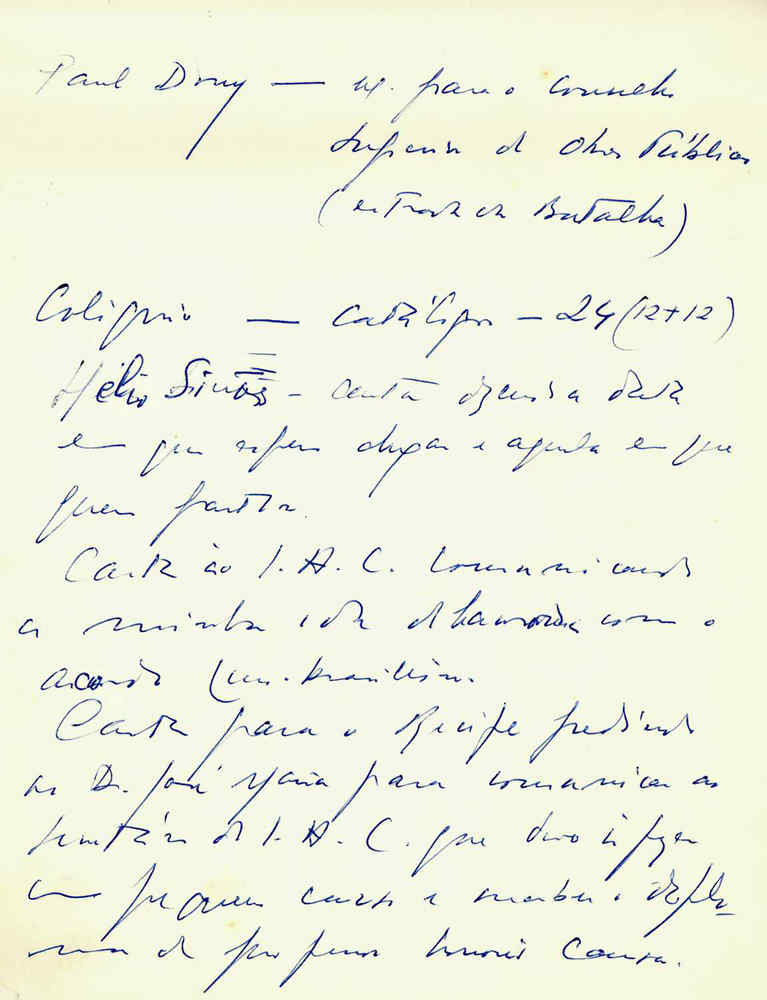 Paul Dony — para o Conselho
Superior de Obras Públicas
(estrada da Batalha)
Colóquio — Catálogos – 24 (12+12)
Hélio Simões – carta data
em que espera chegar e aquela em que
quer partir.
Carta ao I. A. C. comunicando
a minha ida com o
acordo Luso-brasileiro.
Carta para o Recife pedindo
ao D. José para comunicar ao
I. A. C. que devo ir fazer
um pequeno curso e receber o diplo-
ma de professor honoris causa.